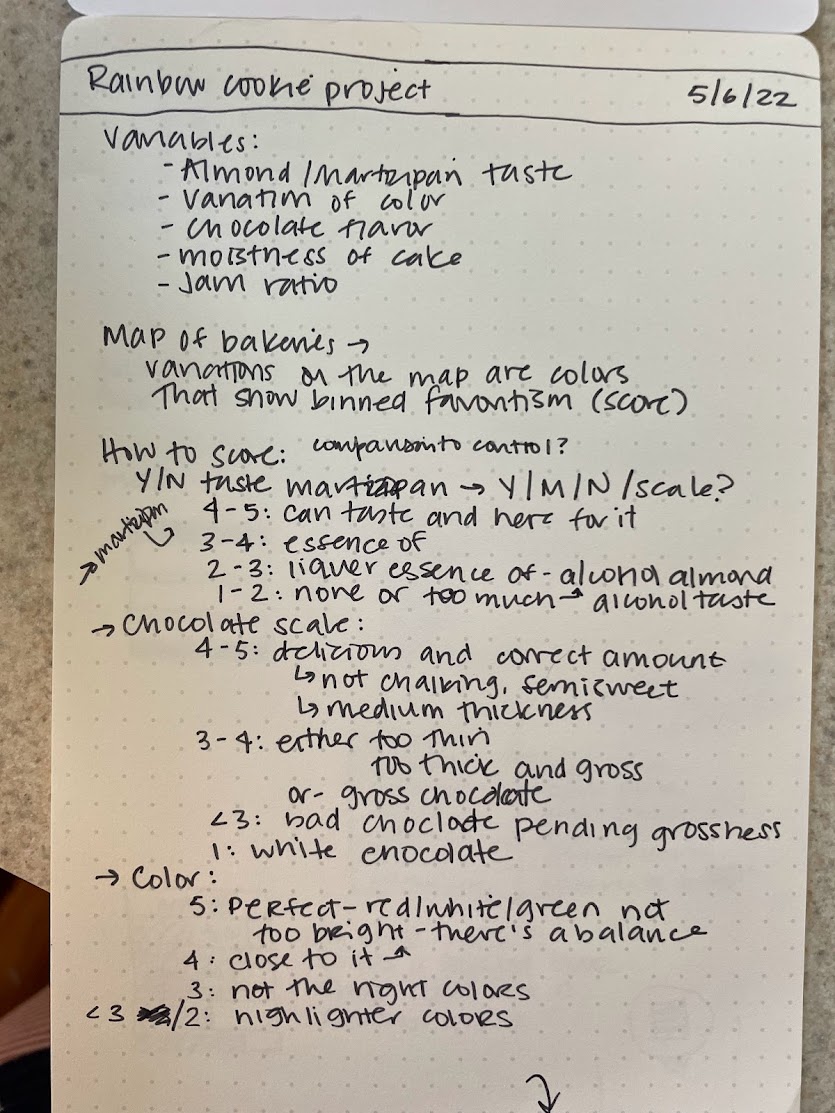 Rainbow cookie project 5/6/22
Variables:
- Almond/Martzipan taste
- Variation of color
- Chocolate flavor
- moistness of cake
- Jam ratio
Map of bakeries →
variations on the map are colors
That show binned favoritism (score)
How to score: comparison to control?
Y/N taste martizapan → Y/M/N/scale?
→ martzipan
4-5: can taste and here for it
3-4: essence of
2-3: liquer essence of - alcohol almond
1-2: none or too much → alcohol taste
→ Chocolate scale:
4-5: delicious and correct amount
↳ not chalking, semisweet
↳ medium thickness
3-4: either too thin
too thick and gross
or - gross chocolate
<3: bad choclate pending grossness
1: white chocolate
→ Color:
5: Perfect - red/white/green not
too bright - there's a balance
4: close to it
3: not the right colors
<3 /2: highlighter colors